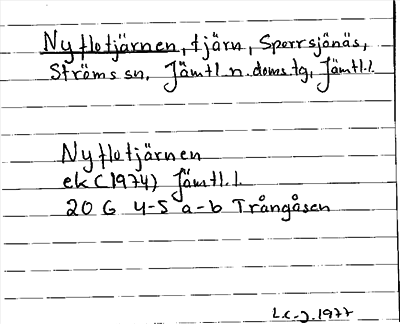 Nyflotjärnen, tjärn, Sporrsjönäs,
Ströms sn, Jämtl. n. doms.tg, Jämtl.l.
Nyflotjärnen
ek (1974) Jämtl.l.
20 G 4-5 a-b Trångåsen
1977